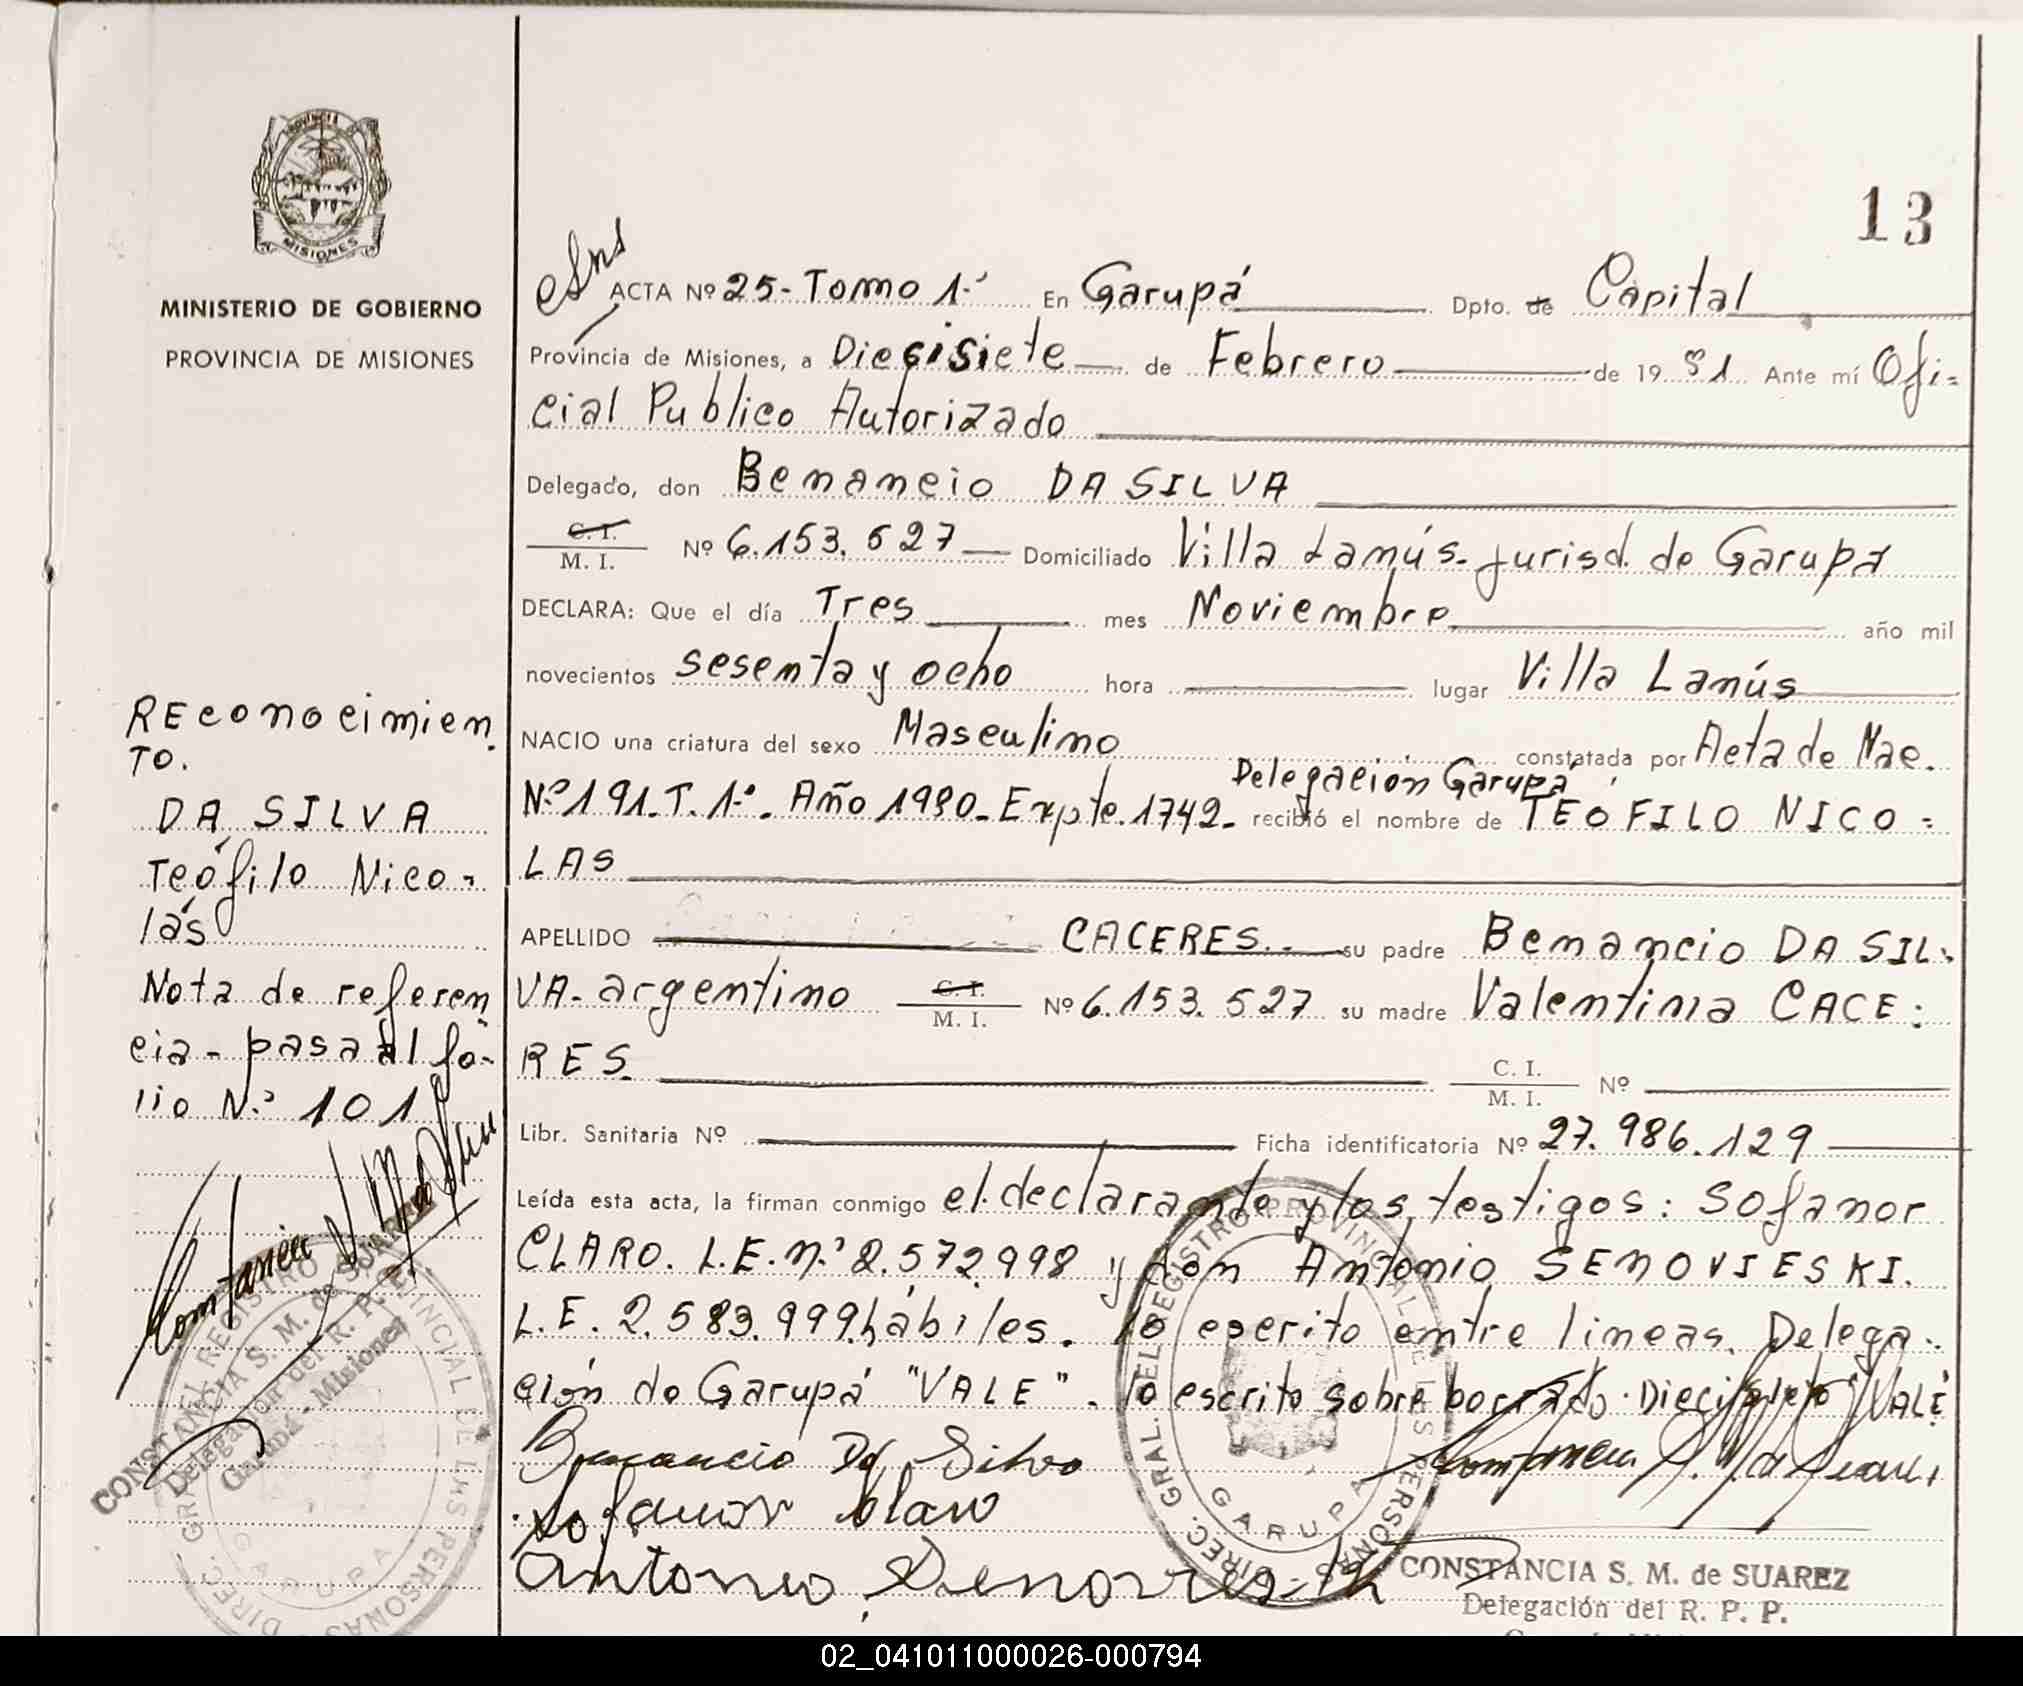 PROVINCIA
MISIONES
MINISTERIO DE GOBIERNO
PROVINCIA DE MISIONES
REconocimien
TO.
DA SILVA
Teófilo Nico-
lás
Nota de referen
cia - pasa al fo-
lio Nº 101
CONSTANCIA S. M. de SUAREZ
Delegación del R. P. P.
Garupá - Misiones
DIREC. GRAL. DEL REGISTRO PROVINCIAL DE LAS PERSONAS
GARUPA
13
ACTA Nº 25- Tomo 1º En Garupá Dpto. de Capital
Provincia de Misiones, a Diecisiete de Febrero de 19 81 Ante mí Ofi-
cial Publico Autorizado
Delegado, don Benancio DA SILVA
C. I.
M. I. Nº 6.153.527 Domiciliado Villa Lanús- jurisd. de Garupá
DECLARA: Que el día Tres mes Noviembre año mil
novecientos sesenta y ocho hora lugar Villa Lanús
NACIO una criatura del sexo Masculino constatada por Acta de Nac.
Delegación Garupá
Nº 191- T. 1º. Año 1980- Expte. 1742- recibió el nombre de TEÓFILO NICO-
LAS
APELLIDO CACERES.- su padre Benancio DA SIL-
VA- argentino C. I. M. I. Nº 6.153.527 su madre Valentina CACE-
RES. C. I. M. I. Nº
Libr. Sanitaria Nº Ficha identificatoria Nº 27.986.129
Leída esta acta, la firman conmigo el declarante y los testigos: Sofanor
CLARO. L.E. nº 2.572.998 y don Antonio SENOVIESKI.
L.E. 2.583.999 hábiles. lo escrito entre lineas. Delega-
ción de Garupá "VALE". lo escrito sobre borrado. Diecisiete "VALE"
Benancio Da Silva
Sofanor Claro
DIREC. GRAL. DEL REGISTRO PROVINCIAL DE LAS PERSONAS
GARUPA
CONSTANCIA S. M. de SUAREZ
Delegación del R. P. P.
02_041011000026-000794